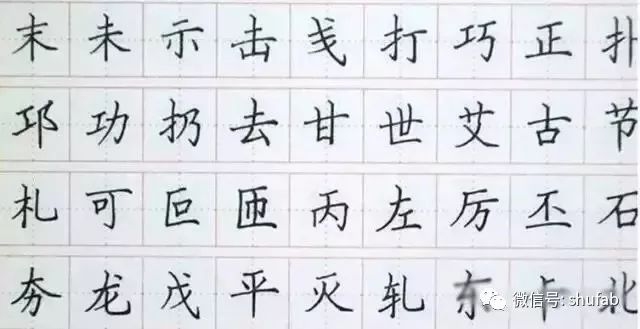 末未示击戋打巧正扑
邛功扔去甘世艾古节
札可叵匝丙左厉丕石
夯龙戊平灭轧东卡北
微信号: shufab